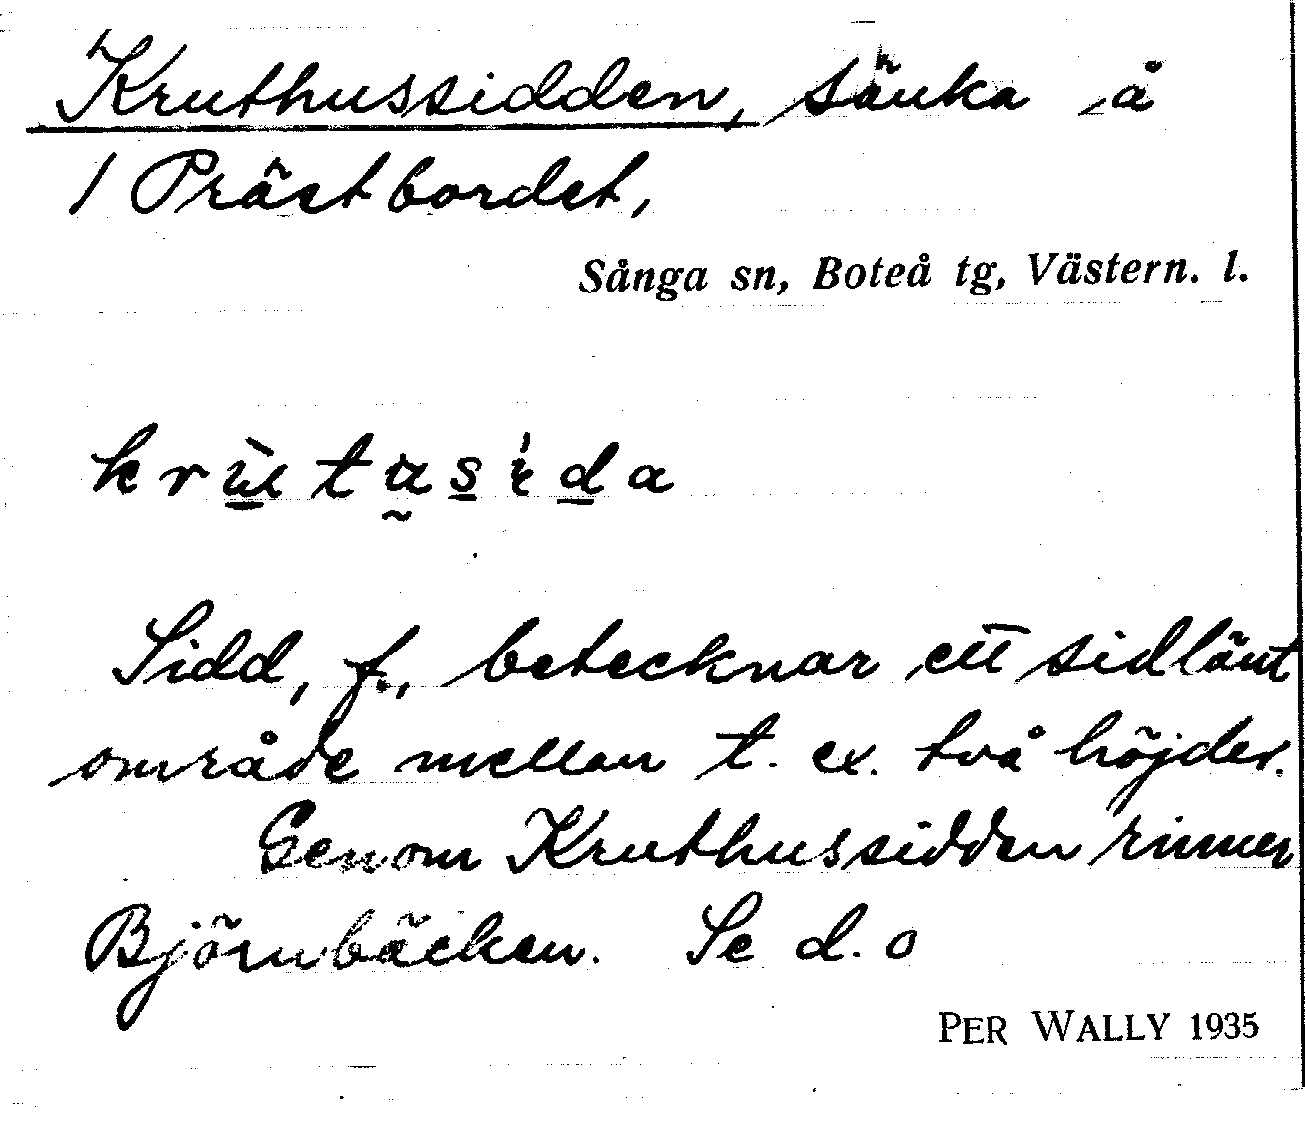 Kruthussidden, sänka å
1 Prästbordet,
Sånga sn, Boteå tg, Västern. l.
Sidd, f., betecknar ett sidlänt
område mellan t. ex. två höjder.
Genom Kruthussidden rinner
Björnbäcken. Se d. o
PER WALLY 1935